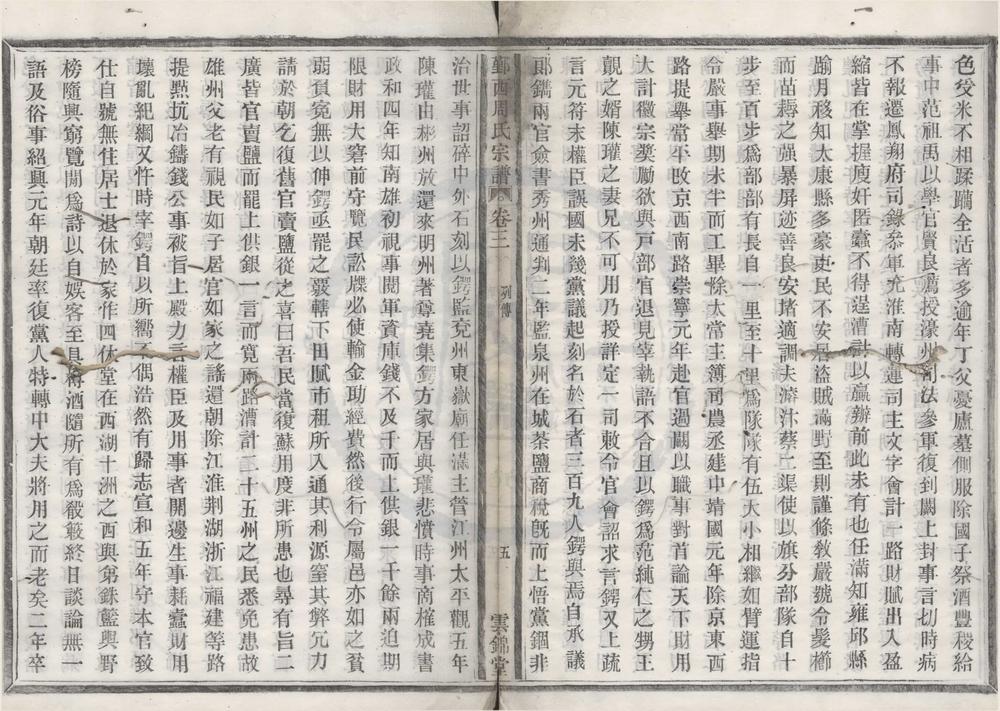 色爻米不相蹂躪全活者多逾年丁父憂廬墓側服除國子祭酒豐稷給
事中范祖禹以學官賢良薦授濠州司法參軍復到闕上封事言切時病
不報遷鳳翔府司錄叅軍充淮南轉運司主文字會計一路財賦出入盈
縮皆在掌握廋奸匿蠹不得逞漕計以贏辦前此未有也任滿知雍邱縣
踰月移知太康縣多豪吏民不安居盜賊滿野至則謹條敎嚴號令髮櫛
而苗耨之强暴屏迹善良安堵適調夫濬汴蔡二渠使以旗分部隊自十
步至百步爲部部有長自一里至十里爲隊隊有伍大小相繼如臂運指
令嚴事舉期未半而工畢除太常主簿司農丞建中靖國元年除京東西
路提舉常平改京西南路崇寧元年赴官過闕以職事對首論天下財用
大計徽宗奬勵欲與戸部官退見宰執語不合且以鍔爲范純仁之甥王
覿之婿陳瓘之妻兄不可用乃授詳定一司敕令官會詔求言鍔又上疏
言元符末權臣誤國未幾黨議起刻名於石者三百九人鍔與焉自承議
郞鐫兩官僉書秀州通判二年監泉州在城茶鹽商稅旣而上悟黨錮非
鄞西周氏宗譜 卷三 列傳 五 雲錦堂
治世事詔碎中外石刻以鍔監兗州東嶽廟任滿主管江州太平觀五年
陳瓘由彬州放還來明州著尊堯集鍔方家居與瓘悲憤時事商榷成書
政和四年知南雄初視事閱軍資庫錢不及千而上供銀一千餘兩迫期
限財用大窘前守覽民訟牒必使輸金助經費然後行令屬邑亦如之貧
弱負寃無以伸鍔亟罷之覈轄下田賦市租所入通其利源窒其弊冗力
請於朝乞復舊官賣鹽從之喜曰吾民當復蘇用度非所患也尋有旨二
廣皆官賣鹽而罷上供銀一言而寬兩路漕計二十五州之民悉免患故
雄州父老有視民如子居官如家之謠還朝除江淮荆湖浙江福建等路
提㸃坑冶鑄錢公事被旨上殿力言權臣及用事者開邊生事耗蠹財用
壞亂紀綱又忤時宰鍔自以所嚮不偶浩然有歸志宣和五年守本官致
仕自號無住居士退休於家作四休堂在西湖十洲之西與弟銖籃輿野
榜隨興窮覽閒爲詩以自娛客至具樽酒隨所有爲殽簌終日談論無一
語及俗事紹興元年朝廷率復黨人特轉中大夫將用之而老矣二年卒